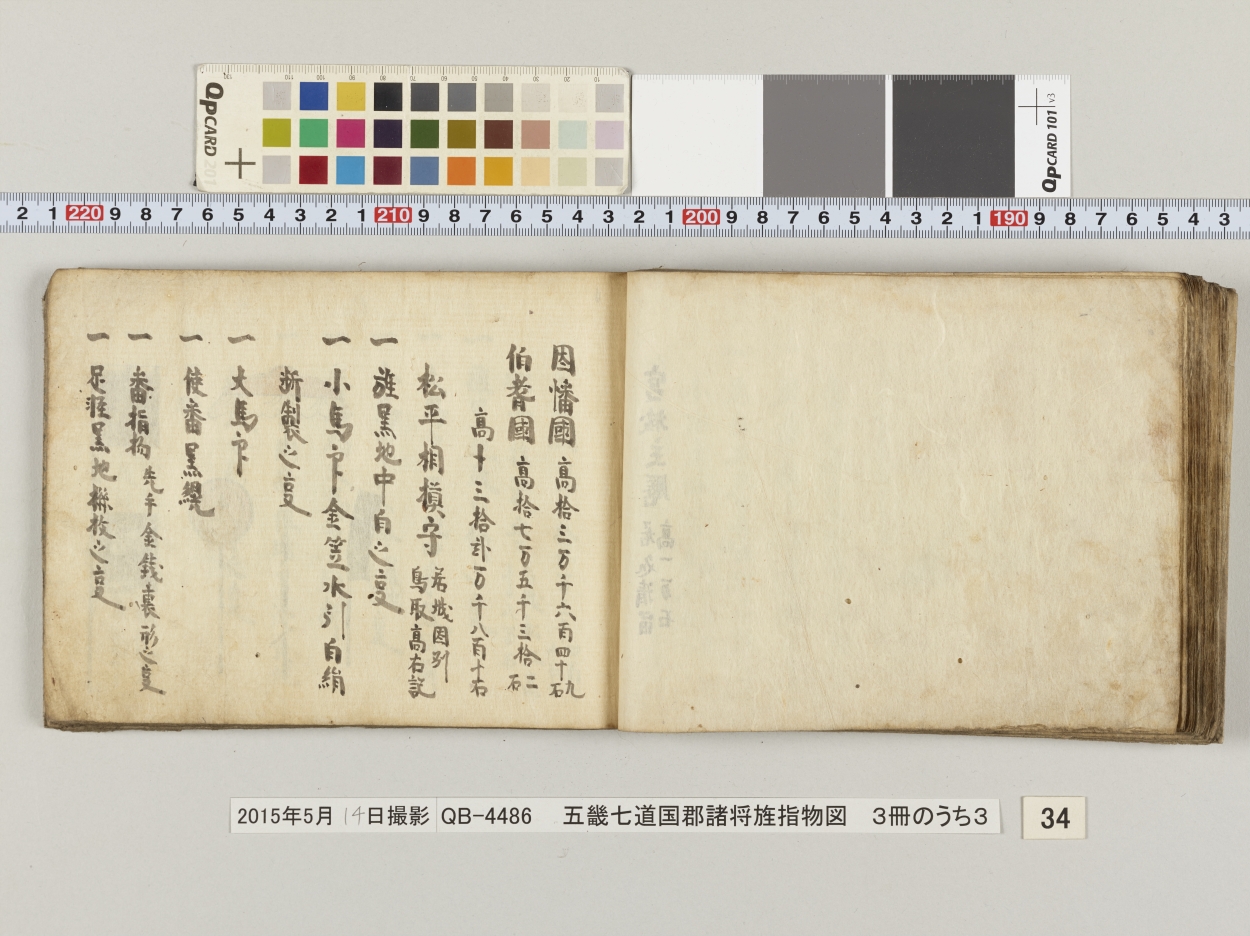 QPCARD 201
QPCARD 101 v3
2 1 220 9 8 7 6 5 4 3 2 1 210 9 8 7 6 5 4 3 2 1 200 9 8 7 6 5 4 3 2 1 190 9 8 7 6 5 4 3
因幡國 高拾三万千六百四十九石
伯耆國 高拾七万五千三拾二石
高十三拾弐万千八百十石
松平相模守 居城因列
鳥取高右説
一 旌黒地中白之夏
一 小馬印金笠水引白絹
断製之夏
一 大馬印
一 使番黒縨
一 番指物 先手金銭裏形之夏
一 足旌黒地 枚之夏
2015年5月14日撮影 QB-4486 五畿七道国郡諸将旌指物図 3冊のうち3
34